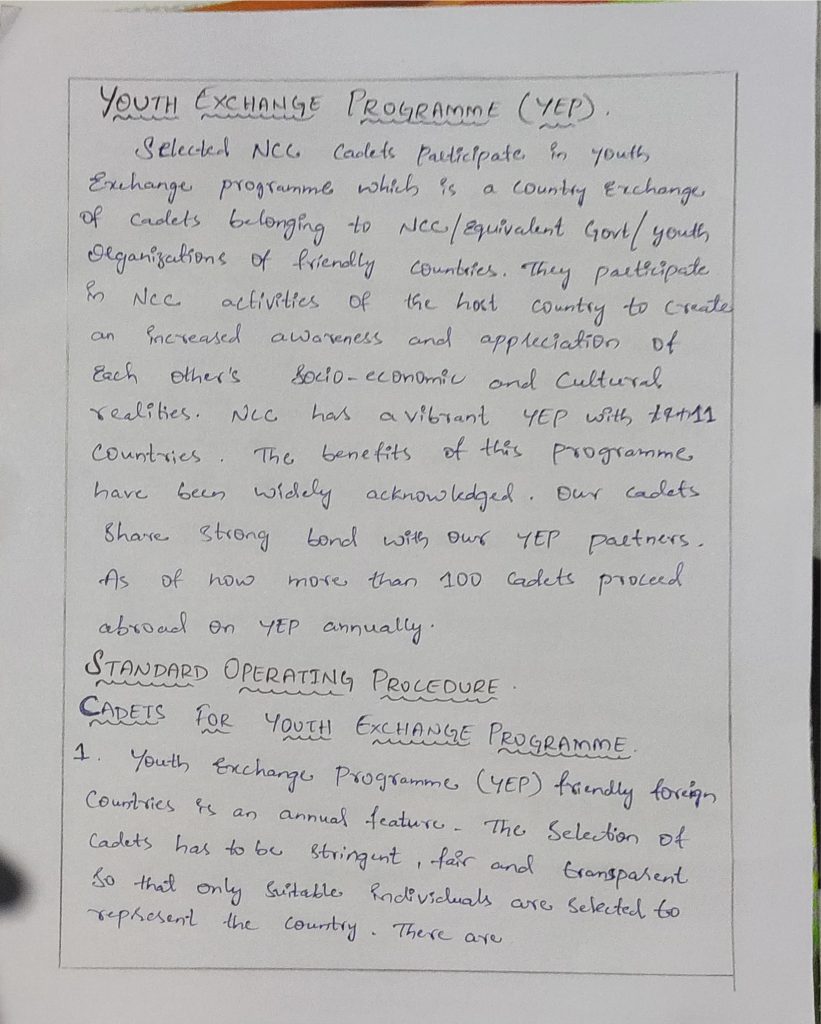 YOUTH EXCHANGE PROGRAMME (YEP).
Selected NCC Cadets Participate in youth
Exchange programme which is a country Exchange
of cadets belonging to NCC/Equivalent Govt/youth
Organizations of friendly countries. They participate
in NCC activities of the host country to create
an increased awareness and appreciation of
Each other's Socio-economic and Cultural
realities. NCC has a vibrant YEP with 11
Countries. The benefits of this programme
have been widely acknowledged. Our cadets
Share Strong bond with our YEP partners.
As of now more than 100 Cadets proceed
abroad on YEP annually.
STANDARD OPERATING PROCEDURE.
CADETS FOR YOUTH EXCHANGE PROGRAMME.
1. Youth Exchange Programme (YEP) friendly foreign
Countries is an annual feature. The Selection of
Cadets has to be Stringent, fair and transparent
So that only Suitable individuals are Selected to
represent the country. There are